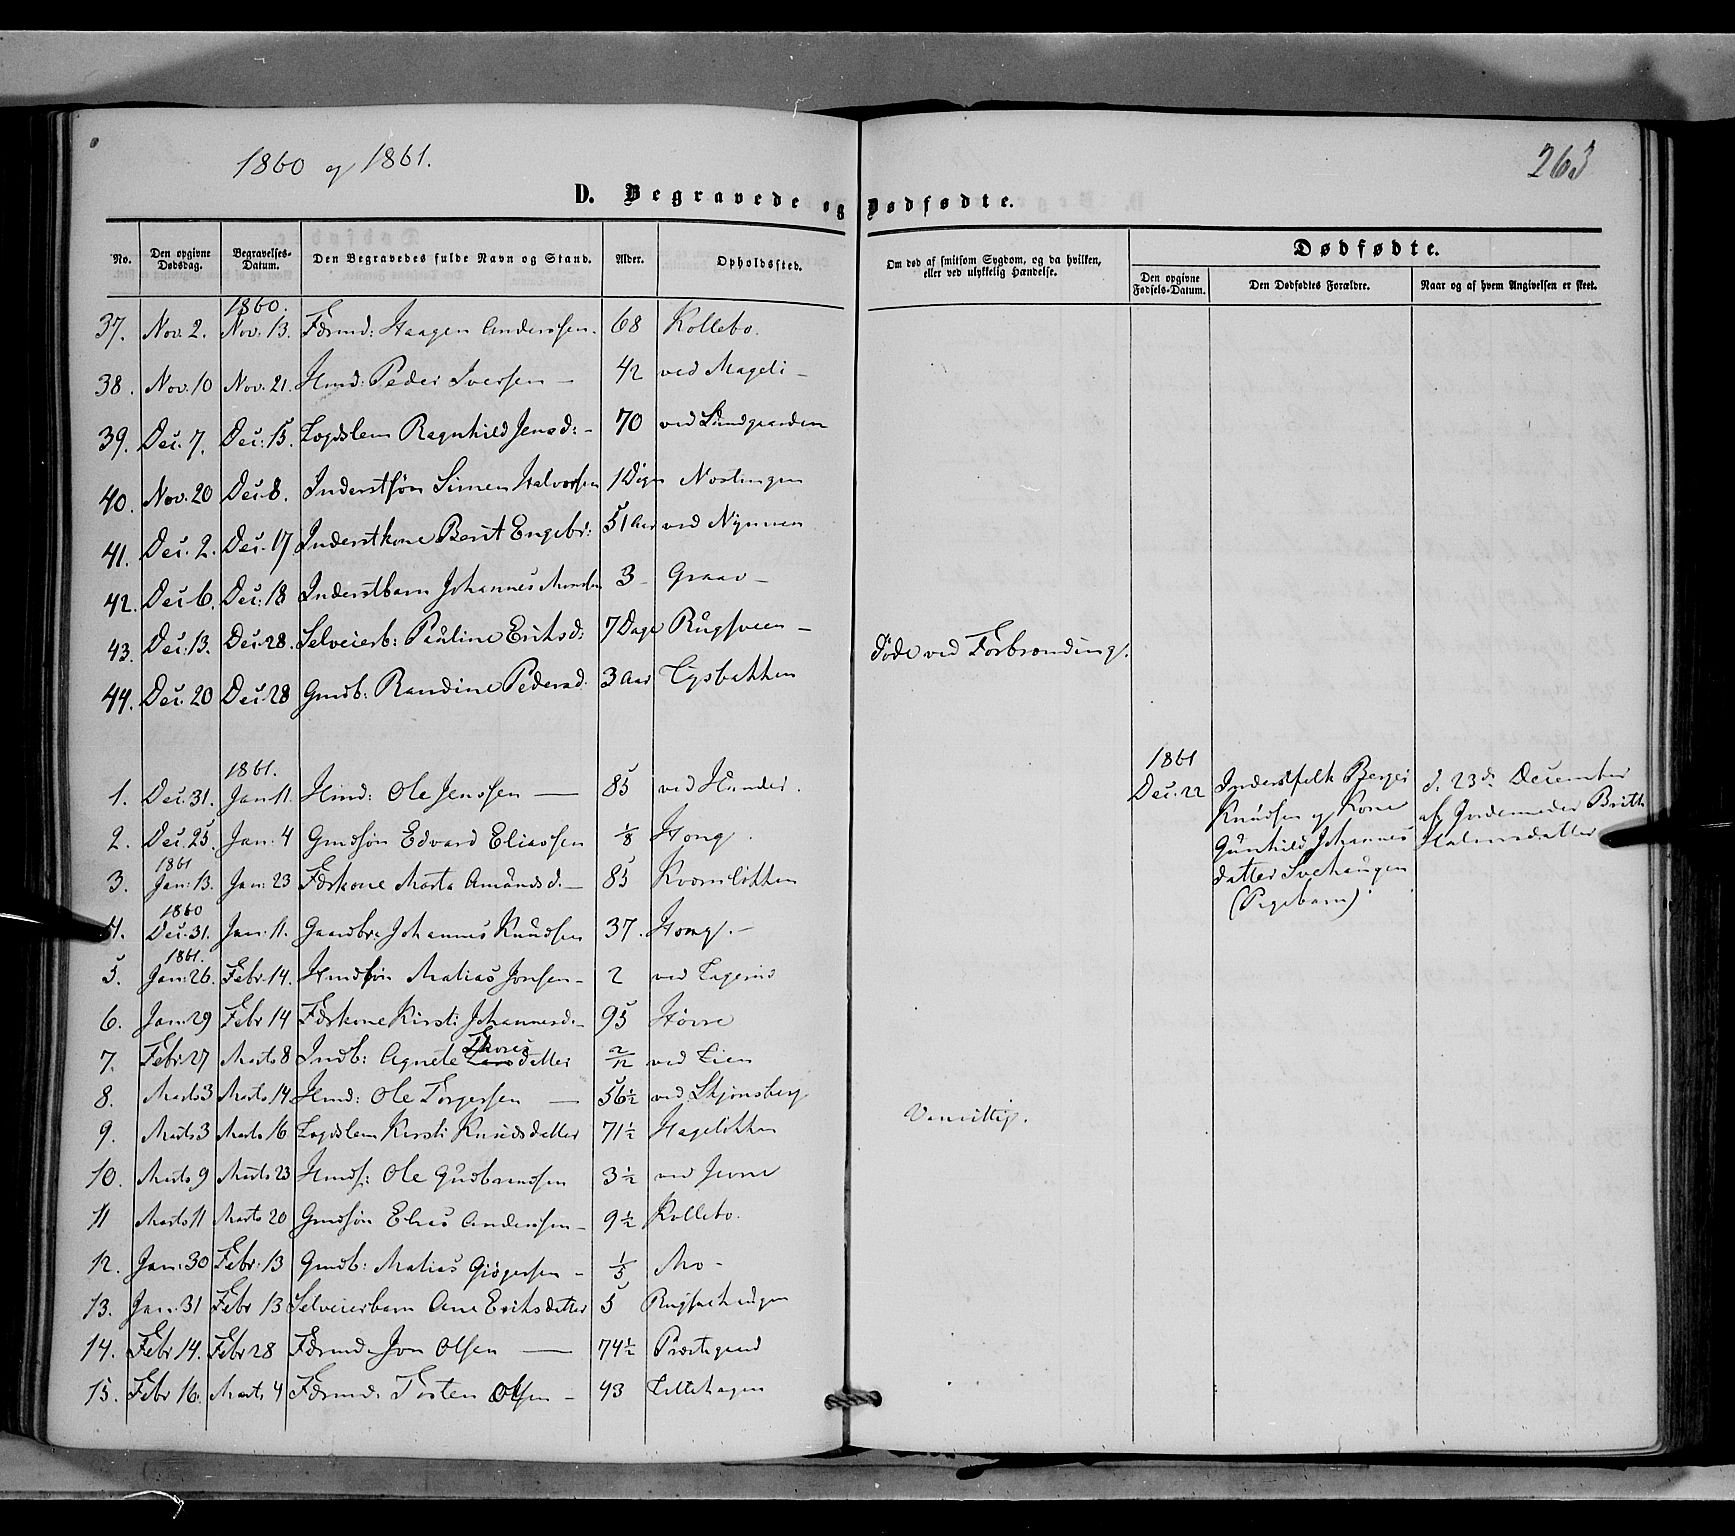 1860 og 1861.
263
D. Begravede og Dødfødte.
No. Den opgivne Dødsdag. Begravelses-Datum. Den Begravedes fulde Navn og Stand. Alder. Opholdssted. Om død af smitsom Sygdom, og da hvilken, eller ved ulykkelig Hændelse. Dødfødte.
Den opgivne Fødsels-Datum. Den Dødfødtes Forældre. Naar og af hvem Angivelsen er skeet.
1860.
37. Nov. 2. Nov. 13. Haagen Anderssen. 68 Kollebo.
38. Nov. 10 Nov. 21. Hmd: Peder Iversen — 42 ved Mageli —
39. Dec. 7. Dec. 15. Lægdslem Ragnhild Jensd: — 70 ved Lundgaarden
40. Nov. 20 Dec. 8. Inderstsøn Simen Halvorsen 1 Døgn Nostingen
41. Dec. 2. Dec. 17 Inderstkone Berit Engebr: 51 Aar ved
42. Dec 6. Dec: 18 Inderstbarn Johannes 3 — Graav —
43. Dec: 13. Dec. 28. Selveierb: Pauline Eriksd: 7 Dage Rugsveen —
44. Dec. 20 Dec. 28 Gmdb: Randine Pedersd. 3 Aar Lysbakken døde ved Forbrænding.
1861.
1. Dec. 31. Jan 11. Hmd: Ole Jenssen — 85 ved Hunder.
2. Dec. 25. Jan. 4 Gmdsøn Edvard Eliassen 1/8 Hong.
1861
3. Jan: 13. Jan: 23 Førkone Marta Amundsd. — 85 Kvernløkken
1860
4. Dec. 31. Jan. 11. Gaardbr: Johannes Knudsen 37. Hong. —
1861.
5. Jan: 26. Febr. 14. Hmdsøn Matias Jonsen — 2 ved
6. Jan: 29 Febr 14 Førkone Kirsti Johannesd: — 95 Hovre
Thores
7. Febr: 27 Marts 8 Indb: Agnete datter 2/12 ved Lien
8. Marts 3 Marts 14 Hmd: Ole Torgersen — 56 1/2 ved Skjønsberg
9. Marts 3 Marts 16 Lægdslem Kirsti Knudsdatter 71 1/2 Hageløkken Vanvittig.
10. Marts 9 Marts 23 Hmds: Ole Gudbrandsen 3 1/2 ved Jevne
11 Marts 11 Marts 20 Gmdsøn Elias Anderssen — 9 1/2 Kollebo.
12. Jan: 30 Febr: 13 Gmdb: Matias Gjøgersen — 1/5 Mo —
13. Jan: 31 Febr 13 Selveierbarn Ane Eriksdatter 5 Rugsvehaugen
14. Febr 14. Febr 28 Førmd: Jon Olsen — 74 1/2 Præstegaard
15. Febr 16. Marts 4 Førmd: Torsten Olsen — 43 Lillehagen
1861
Dec. 22 Inderstfolk Berger d. 23de December
Knudsen og Kone af Jordemoder Brith
Gunhild Johannes Halvorsdatter
datter Svehaugen
(Pigebarn).